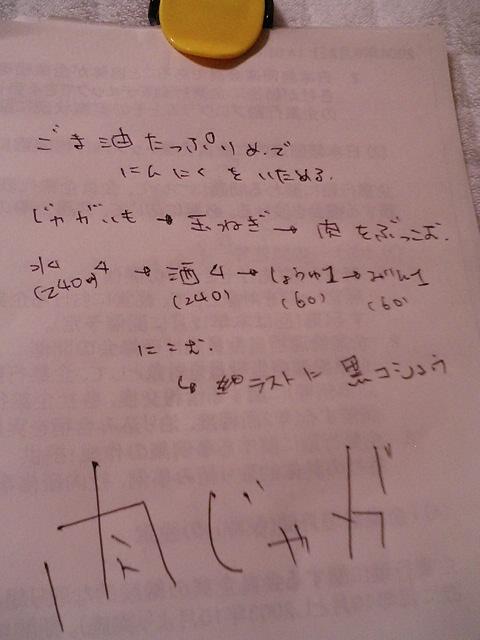 ごま油たっぷりめで
にんにくをいためる
じゃがいも→玉ねぎ→肉をぶっこむ.
水4→酒4→しょうゆ1→みりん1
(240) (240) (60) (60)
にこむ.
↳ ラストに黒コショウ
肉じゃが